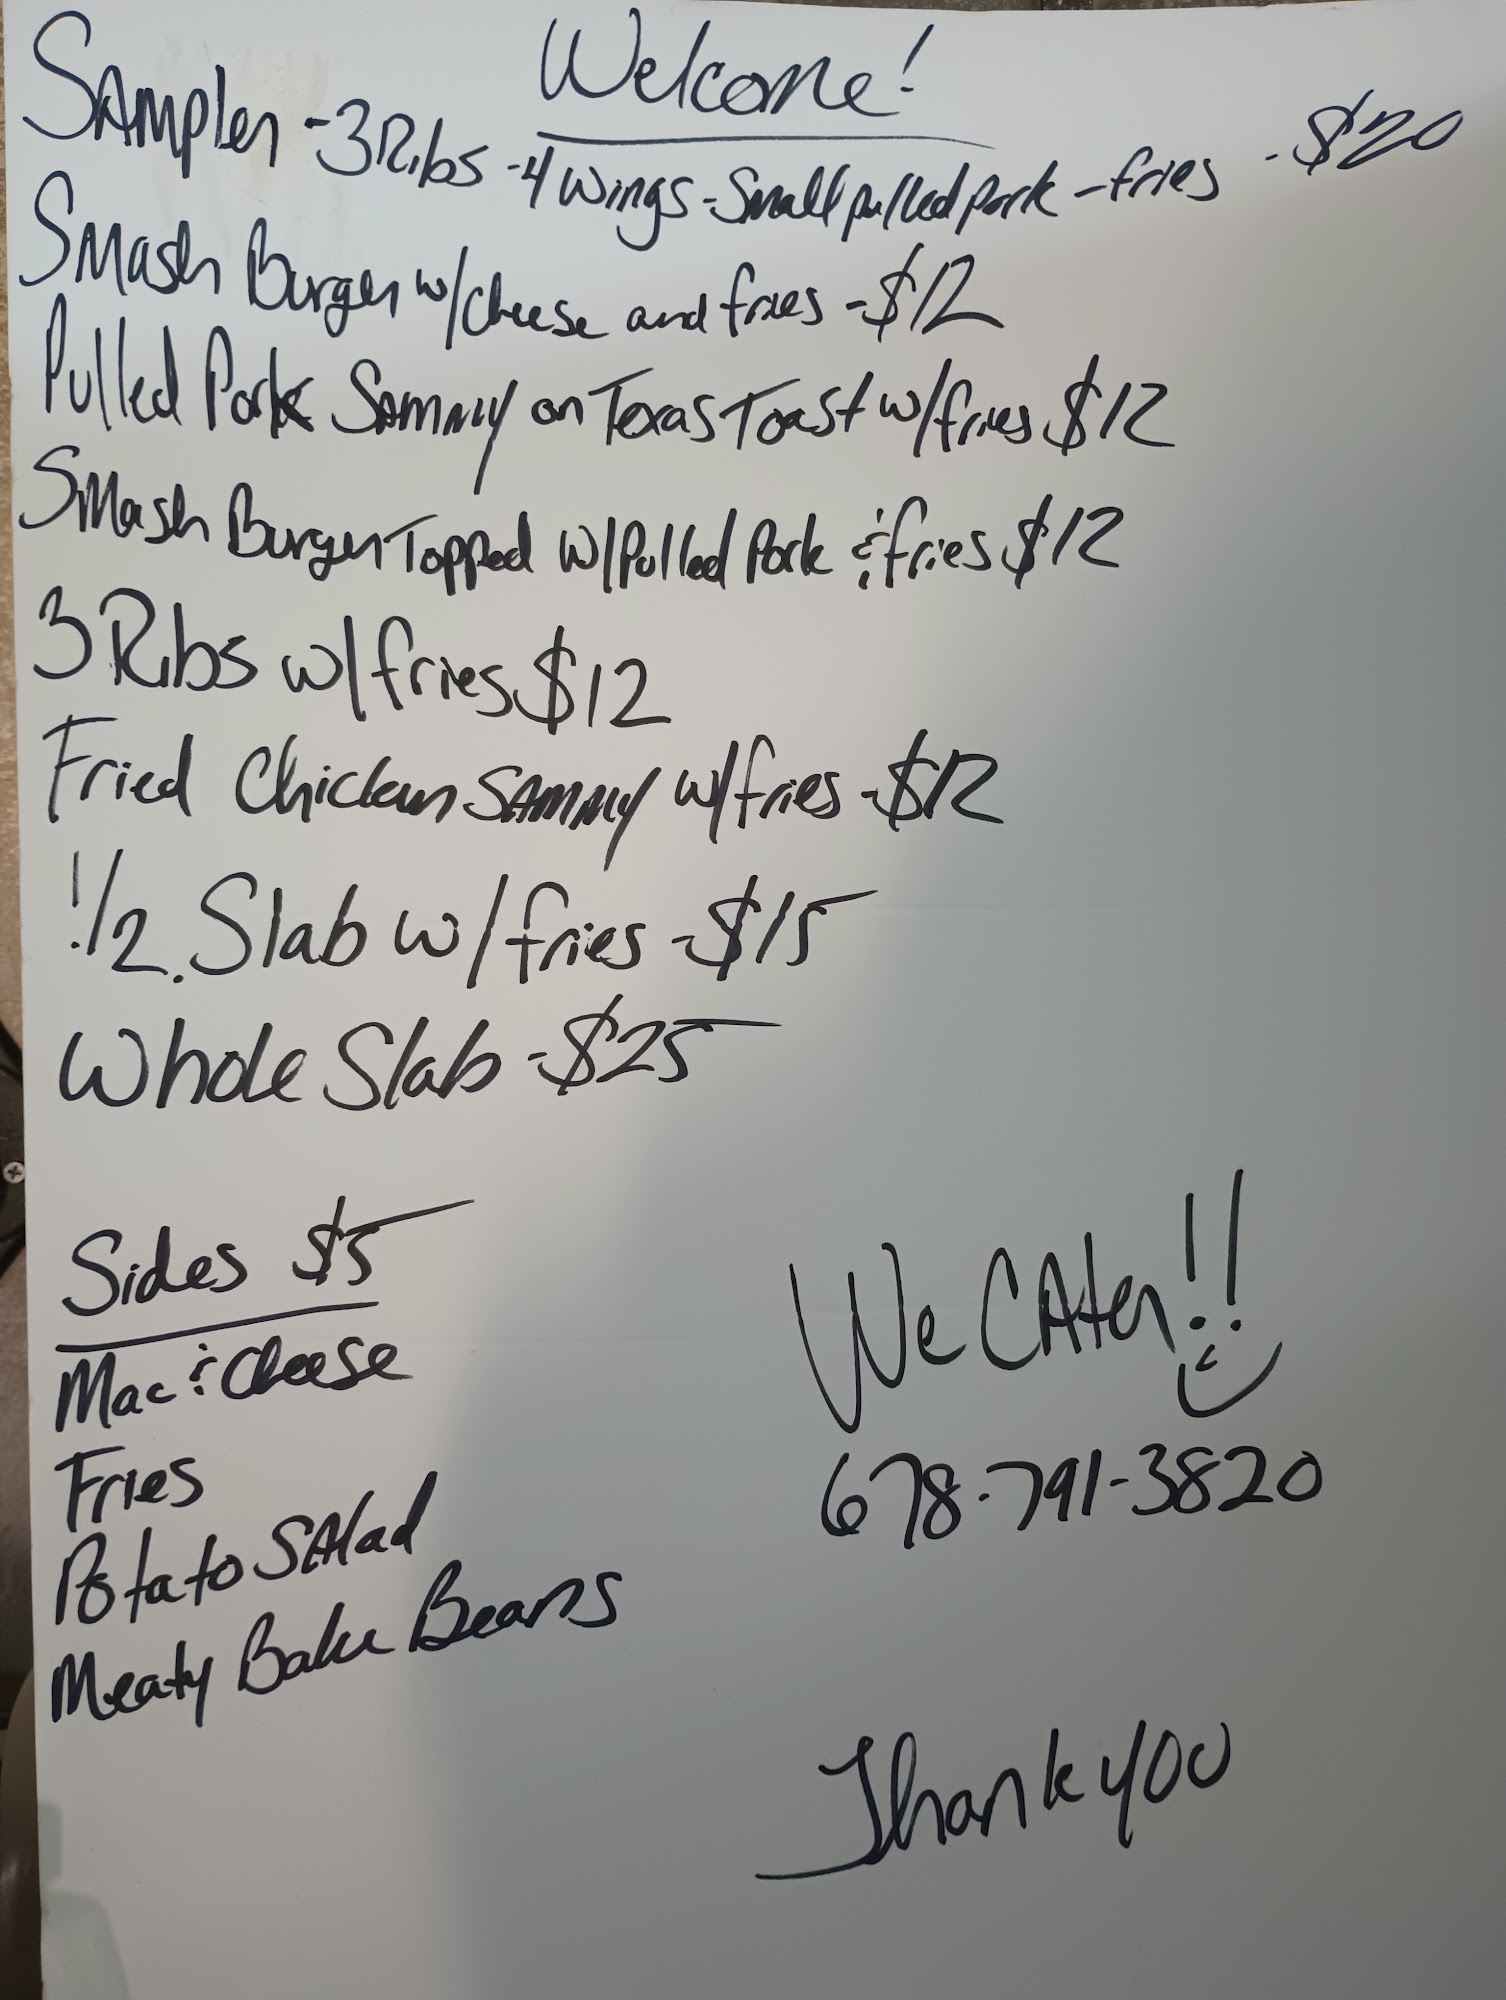 Welcome!
Sampler - 3 Ribs - 4 wings - Small pulled pork - fries - $20
Smash Burger w/cheese and fries - $12
Pulled Pork Sammy on Texas Toast w/fries $12
Smash Burger Topped w/Pulled Pork & fries $12
3 Ribs w/fries $12
Fried Chicken Sammy w/fries - $12
1/2 Slab w/fries - $15
Whole Slab - $25
Sides $5
Mac & Cheese
Fries
Potato Salad
Meaty Bake Beans
We Cater!!
678-791-3820
Thank you